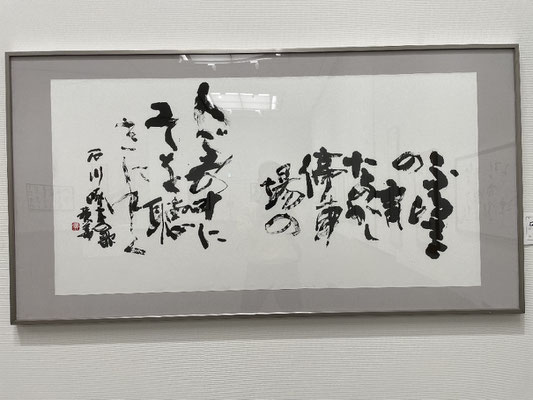 の訛
なつかし
停車
場の
人ごみの中に
そを聴
きにゆく
石川啄木歌